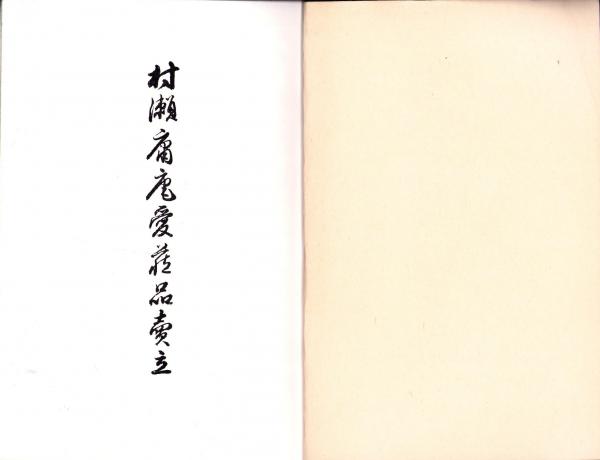 村瀬庸庵愛蔵品賣立